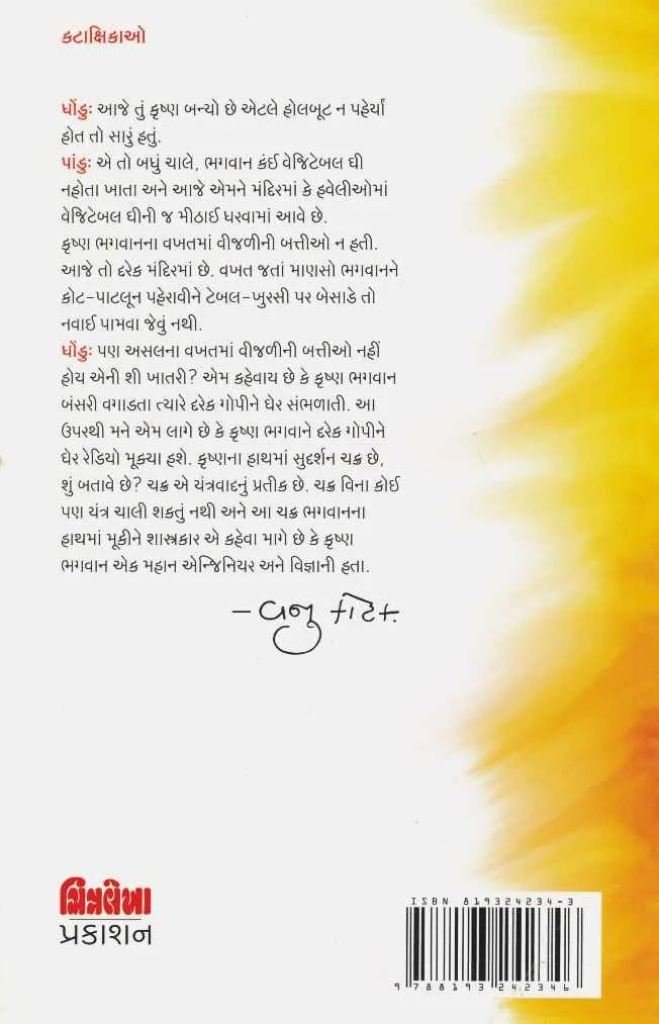 કટાક્ષિકાઓ
ધોંડુઃ આજે તું કૃષ્ણ બન્યો છે એટલે હોલબૂટ ન પહેર્યાં
હોત તો સારું હતું.
પાંડુઃ એ તો બધું ચાલે, ભગવાન કંઈ વેજિટેબલ ઘી
નહોતા ખાતા અને આજે એમને મંદિરમાં કે હવેલીઓમાં
વેજિટેબલ ઘીની જ મીઠાઈ ધરવામાં આવે છે.
કૃષ્ણ ભગવાનના વખતમાં વીજળીની બત્તીઓ ન હતી.
આજે તો દરેક મંદિરમાં છે. વખત જતાં માણસો ભગવાનને
કોટ-પાટલૂન પહેરાવીને ટેબલ-ખુરસી પર બેસાડે તો
નવાઈ પામવા જેવું નથી.
ધોંડુઃ પણ અસલના વખતમાં વીજળીની બત્તીઓ નહીં
હોય એની શી ખાતરી? એમ કહેવાય છે કે કૃષ્ણ ભગવાન
બંસરી વગાડતા ત્યારે દરેક ગોપીને ઘેર સંભળાતી. આ
ઉપરથી મને એમ લાગે છે કે કૃષ્ણ ભગવાને દરેક ગોપીને
ઘેર રેડિયો મૂક્યા હશે. કૃષ્ણના હાથમાં સુદર્શન ચક્ર છે,
શું બતાવે છે? ચક્ર એ યંત્રવાદનું પ્રતીક છે. ચક્ર વિના કોઈ
પણ યંત્ર ચાલી શકતું નથી અને આ ચક્ર ભગવાનના
હાથમાં મૂકીને શાસ્ત્રકાર એ કહેવા માગે છે કે કૃષ્ણ
ભગવાન એક મહાન એન્જિનિયર અને વિજ્ઞાની હતા.
– વજુ કોટક
ચિત્રલેખા
પ્રકાશન
ISBN 819324234-3
9 788193 242346